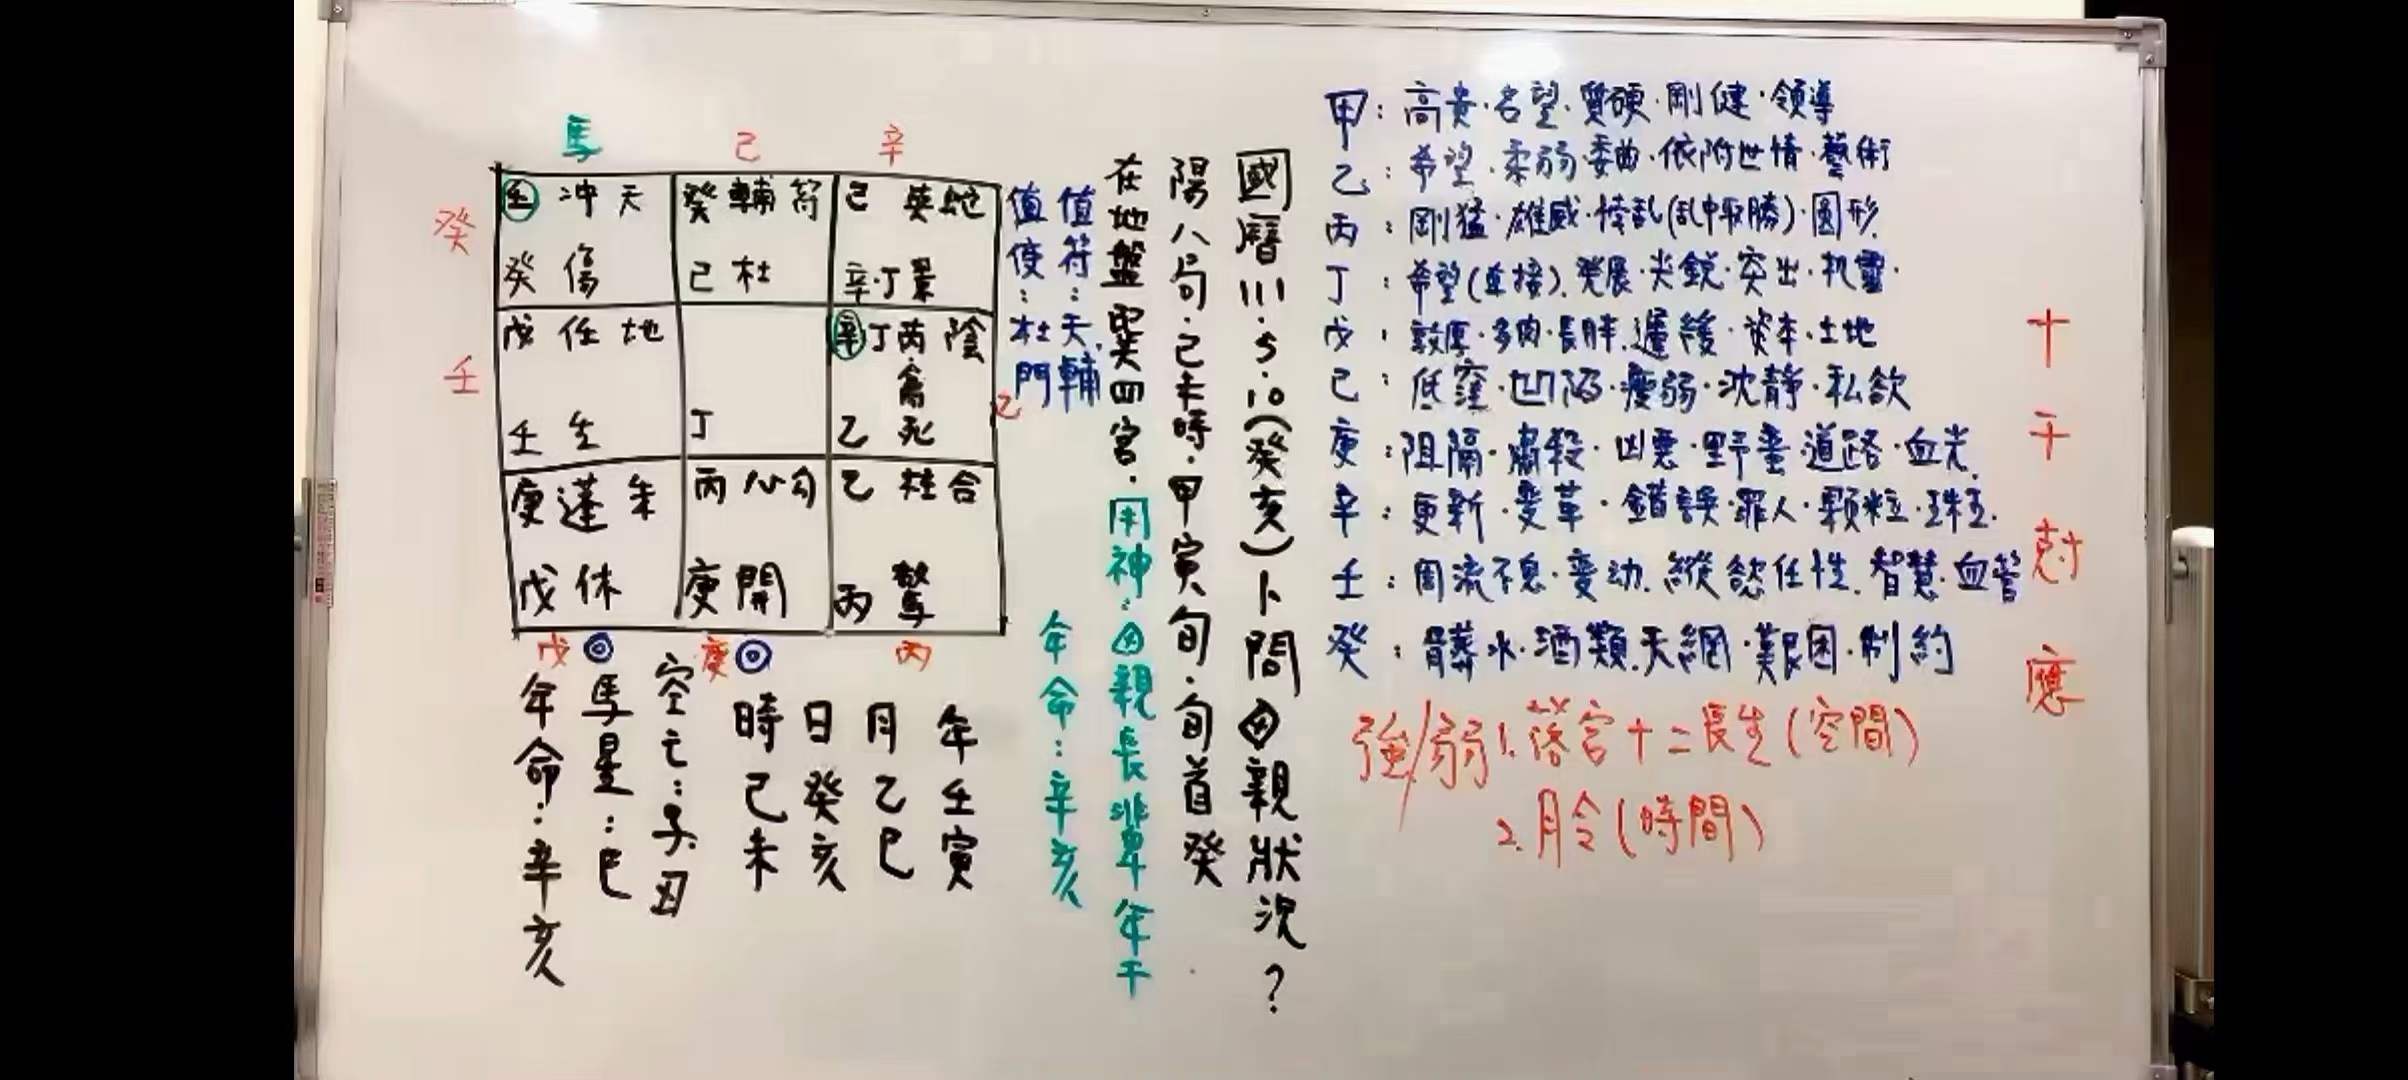 馬
己
辛
癸
壬 冲 天
癸 傷
癸 輔 符
己 杜
己 英 蛇
辛·丁 景
壬
戊 任 地
壬 生
丁
辛 丁 丙 陰
禽
乙 死
乙
庚 蓬 朱
戊 休
丙 心 勾
庚 開
乙 柱 合
丙 驚
戊
庚
丙
年壬寅
月乙巳
日癸亥
時己未
空亡：子丑
馬星：巳
年命：辛亥
國曆111.5.10(癸亥)卜問母親狀況？
陽八局·己未時·甲寅旬·旬首癸
在地盤巽四宮·用神：母親長輩年干
年命：辛亥
值符：天輔
值使：杜門
甲：高貴·名望·質硬·剛健·領導
乙：希望·柔弱·委曲·依附世情·藝術
丙：剛猛·雄威·悖乱(乱中取勝)·圓形.
丁：希望(直接).発展·尖銳·突出·机靈·
戊：敦厚·多肉·長胖.遲緩·資本·土地
己：低窪·凹陷·瘦弱·沈静·私欲
庚：阻隔·肅殺·凶悪·野蛮·道路·血光.
辛：更新·变革·錯誤·罪人·顆粒·珠玉.
壬：周流不息·变动.縱慾任性.智慧·血管
癸：髒水·酒類.天網·艱困·制約
十干尅應
強/弱 1.落宮十二長生(空間)
2.月令(時間)